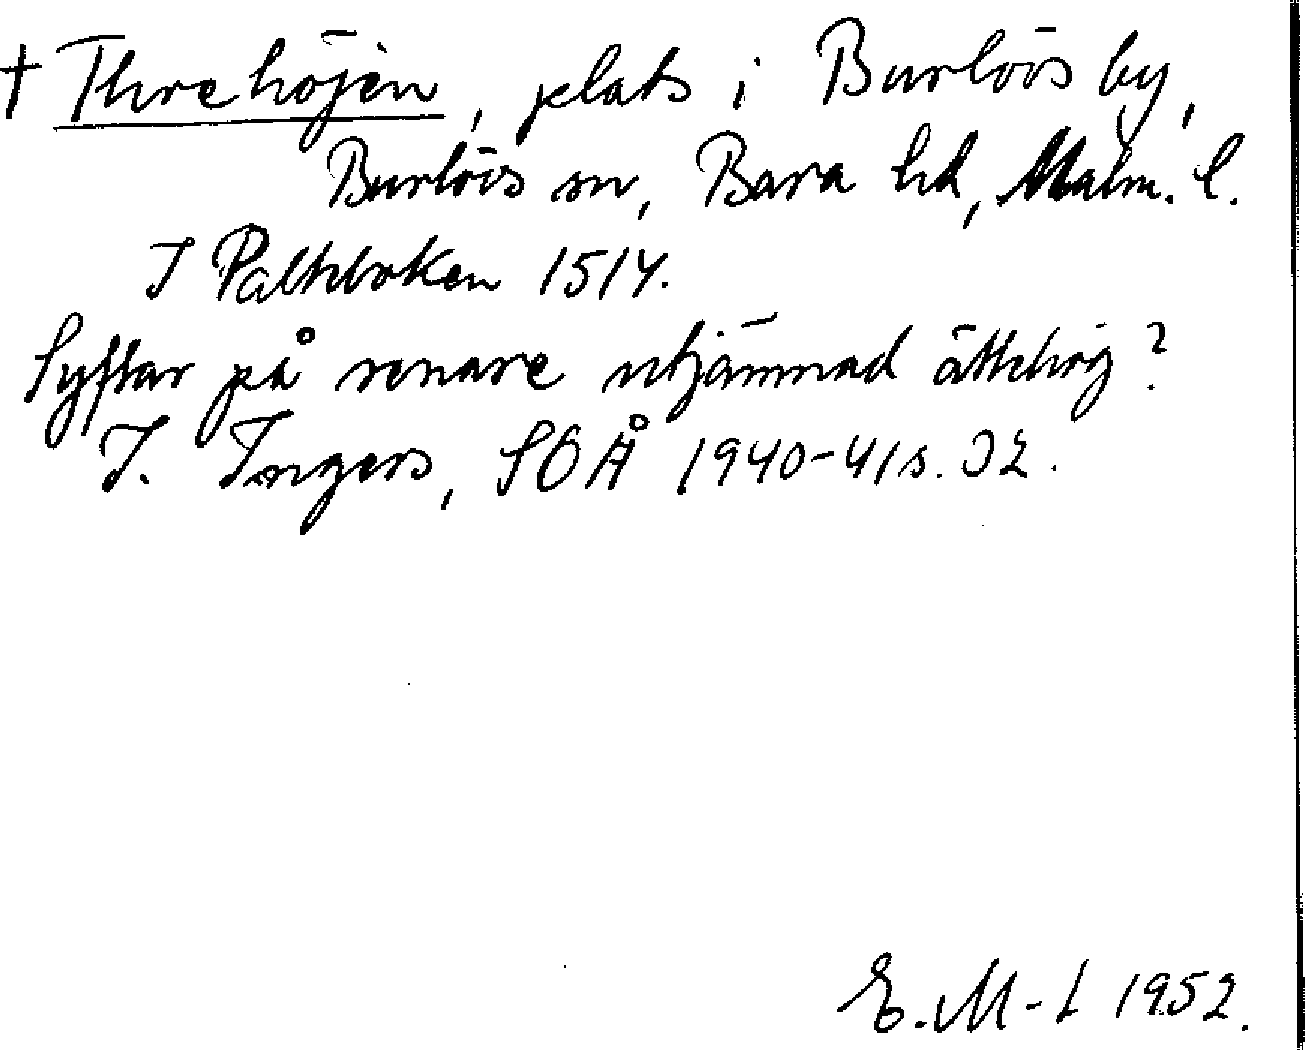 † Threhöjen, plats i Burlövs by,
Burlövs sn, Bara hd, Malm. l.
I Palteboken 1514.
Syftar på senare utjämnad ättehög?
I. Ingers, SOÅ 1940-41 s. 32.
E. M-L 1952.